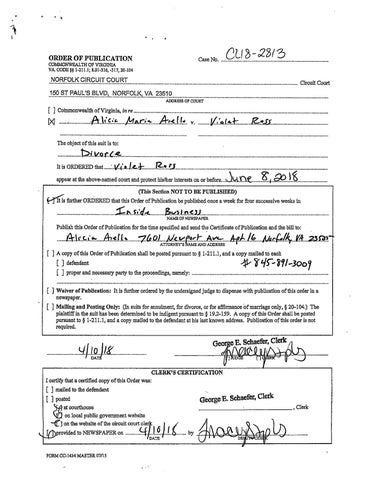 ORDER OF PUBLICATION
Case No. CL18-2813
COMMONWEALTH OF VIRGINIA
VA. CODE §§ 1-211.1; 8.01-316, -317, 20-104
NORFOLK CIRCUIT COURT
Circuit Court
150 ST PAUL'S BLVD, NORFOLK, VA 23510
ADDRESS OF COURT
[ ] Commonwealth of Virginia, in re
[X] Alicia Maria Arello v. Violet Ross
The object of this suit is to:
Divorce
It is ORDERED that Violet Ross
appear at the above-named court and protect his/her interests on or before June 8, 2018
(This Section NOT TO BE PUBLISHED)
It is further ORDERED that this Order of Publication be published once a week for four successive weeks in
Inside Business
NAME OF NEWSPAPER
Publish this Order of Publication for the time specified and send the Certificate of Publication and the bill to:
Alicia Arello 7601 Newport Ave Apt 16 Norfolk, VA 23505
ATTORNEY'S NAME AND ADDRESS
[ ] A copy of this Order of Publication shall be posted pursuant to § 1-211.1, and a copy mailed to each
[ ] defendant # 845-891-3009
[ ] proper and necessary party to the proceedings, namely:
[ ] Waiver of Publication: It is further ordered by the undersigned judge to dispense with publication of this order in a
newspaper.
[ ] Mailing and Posting Only: (In suits for annulment, for divorce, or for affirmance of marriage only, § 20-104.) The
plaintiff in the suit has been determined to be indigent pursuant to § 19.2-159. A copy of this Order shall be posted
pursuant to § 1-211.1, and a copy mailed to the defendant at his last known address. Publication of this order is not
required.
George E. Schaefer, Clerk
4/10/18
DATE
CLERK'S CERTIFICATION
I certify that a certified copy of this Order was:
[ ] mailed to the defendant
[ ] posted
George E. Schaefer, Clerk
at courthouse
, Clerk
on local public government website
on the website of the circuit court clerk
provided to NEWSPAPER on 4/10/18 by
DATE
FORM CC-1434 MASTER 07/13